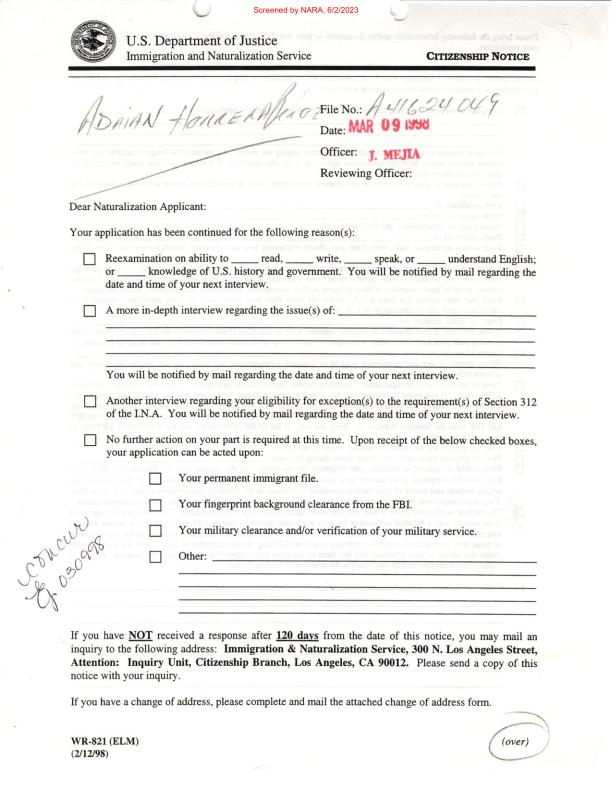 Screened by NARA, 6/2/2023
U.S. Department of Justice
Immigration and Naturalization Service
CITIZENSHIP NOTICE
ADRIAN HERRERA
File No.: A 41 624 049
Date: MAR 09 1998
Officer: J. MEJIA
Reviewing Officer:
Dear Naturalization Applicant:
Your application has been continued for the following reason(s):
Reexamination on ability to _____ read, _____ write, _____ speak, or _____ understand English;
or _____ knowledge of U.S. history and government. You will be notified by mail regarding the
date and time of your next interview.
A more in-depth interview regarding the issue(s) of:
You will be notified by mail regarding the date and time of your next interview.
Another interview regarding your eligibility for exception(s) to the requirement(s) of Section 312
of the I.N.A. You will be notified by mail regarding the date and time of your next interview.
No further action on your part is required at this time. Upon receipt of the below checked boxes,
your application can be acted upon:
Your permanent immigrant file.
Your fingerprint background clearance from the FBI.
Your military clearance and/or verification of your military service.
Other:
concur
030998
If you have NOT received a response after 120 days from the date of this notice, you may mail an
inquiry to the following address: Immigration & Naturalization Service, 300 N. Los Angeles Street,
Attention: Inquiry Unit, Citizenship Branch, Los Angeles, CA 90012. Please send a copy of this
notice with your inquiry.
If you have a change of address, please complete and mail the attached change of address form.
WR-821 (ELM)
(2/12/98)
(over)